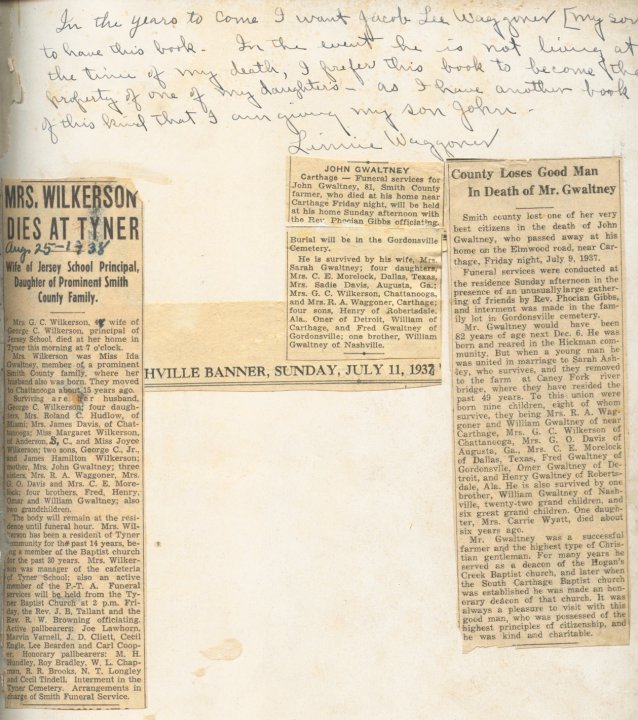 In the years to come I want Jacob Lee Waggoner [my son
to have this book. In the event he is not living at
the time of my death, I prefer this book to become the
property of one of my daughters - as I have another book
of this kind that I am giving my son John.
Linnie Waggoner
MRS. WILKERSON
DIES AT TYNER
Aug 25-1938
Wife of Jersey School Principal,
Daughter of Prominent Smith
County Family.
Mrs. G. C. Wilkerson, wife of
George C. Wilkerson, principal of
Jersey School, died at her home in
Tyner this morning at 7 o'clock.
Mrs. Wilkerson was Miss Ida
Gwaltney, member of a prominent
Smith County family, where her
husband also was born. They moved
to Chattanooga about 15 years ago.
Surviving are her husband,
George C. Wilkerson; four daugh-
ters, Mrs. Roland C. Hudlow, of
Miami; Mrs. James Davis, of Chat-
tanooga; Miss Margaret Wilkerson,
of Anderson, S. C., and Miss Joyce
Wilkerson; two sons, George C., Jr.,
and James Hamilton Wilkerson;
mother, Mrs. John Gwaltney; three
sisters, Mrs. R. A. Waggoner, Mrs.
G. O. Davis and Mrs. C. E. More-
lock; four brothers, Fred, Henry,
Omar and William Gwaltney; also
two grandchildren.
The body will remain at the resi-
dence until funeral hour. Mrs. Wil-
kerson has been a resident of Tyner
community for the past 14 years, be-
ing a member of the Baptist church
for the past 30 years. Mrs. Wilker-
son was manager of the cafeteria
of Tyner School; also an active
member of the P.-T. A. Funeral
services will be held from the Ty-
ner Baptist Church at 2 p.m. Fri-
day, the Rev. J. B. Tallant and the
Rev. R. W. Browning officiating.
Active pallbearers: Joe Lawhorn,
Marvin Varnell, J. D. Cliett, Cecil
Engle, Lee Bearden and Carl Coop-
er. Honorary pallbearers: M. H.
Hundley, Roy Bradley, W. L. Chap-
man, R. R. Brooks, N. T. Longley
and Cecil Tindell. Interment in the
Tyner Cemetery. Arrangements in
charge of Smith Funeral Service.
JOHN GWALTNEY
Carthage — Funeral services for
John Gwaltney, 81, Smith County
farmer, who died at his home near
Carthage Friday night, will be held
at his home Sunday afternoon with
the Rev. Phocian Gibbs officiating.
Burial will be in the Gordonsville
Cemetery.
He is survived by his wife, Mrs.
Sarah Gwaltney; four daughters,
Mrs. C. E. Morelock, Dallas, Texas,
Mrs. Sadie Davis, Augusta, Ga.;
Mrs. G. C. Wilkerson, Chattanooga,
and Mrs. R. A. Waggoner, Carthage;
four sons, Henry of Robertsdale,
Ala., Oner of Detroit, William of
Carthage, and Fred Gwaltney of
Gordonsville; one brother, William
Gwaltney of Nashville.
HVILLE BANNER, SUNDAY, JULY 11, 1937
County Loses Good Man
In Death of Mr. Gwaltney
Smith county lost one of her very
best citizens in the death of John
Gwaltney, who passed away at his
home on the Elmwood road, near Car-
thage, Friday night, July 9, 1937.
Funeral services were conducted at
the residence Sunday afternoon in the
presence of an unusually large gather-
ing of friends by Rev. Phocian Gibbs,
and interment was made in the fam-
ily lot in Gordonsville cemetery.
Mr. Gwaltney would have been
82 years of age next Dec. 6. He was
born and reared in the Hickman com-
munity. But when a young man he
was united in marriage to Sarah Ash-
ley, who survives, and they removed
to the farm at Caney Fork river
bridge, where they have resided the
past 49 years. To this union were
born nine children, eight of whom
survive, they being Mrs. R. A. Wag-
goner and William Gwaltney of near
Carthage, Mrs. G. C. Wilkerson of
Chattanooga, Mrs. G. O. Davis of
Augusta, Ga., Mrs. C. E. Morelock
of Dallas, Texas, Fred Gwaltney of
Gordonsville, Omer Gwaltney of De-
troit, and Henry Gwaltney of Roberts-
dale, Ala. He is also survived by one
brother, William Gwaltney of Nash-
ville, twenty-two grand children, and
six great grand children. One daugh-
ter, Mrs. Carrie Wyatt, died about
six years ago.
Mr. Gwaltney was a successful
farmer and the highest type of Chris-
tian gentleman. For many years he
served as a deacon of the Hogan's
Creek Baptist church, and later when
the South Carthage Baptist church
was established he was made an hon-
orary deacon of that church. It was
always a pleasure to visit with this
good man, who was possessed of the
highest principles of citizenship, and
he was kind and charitable.